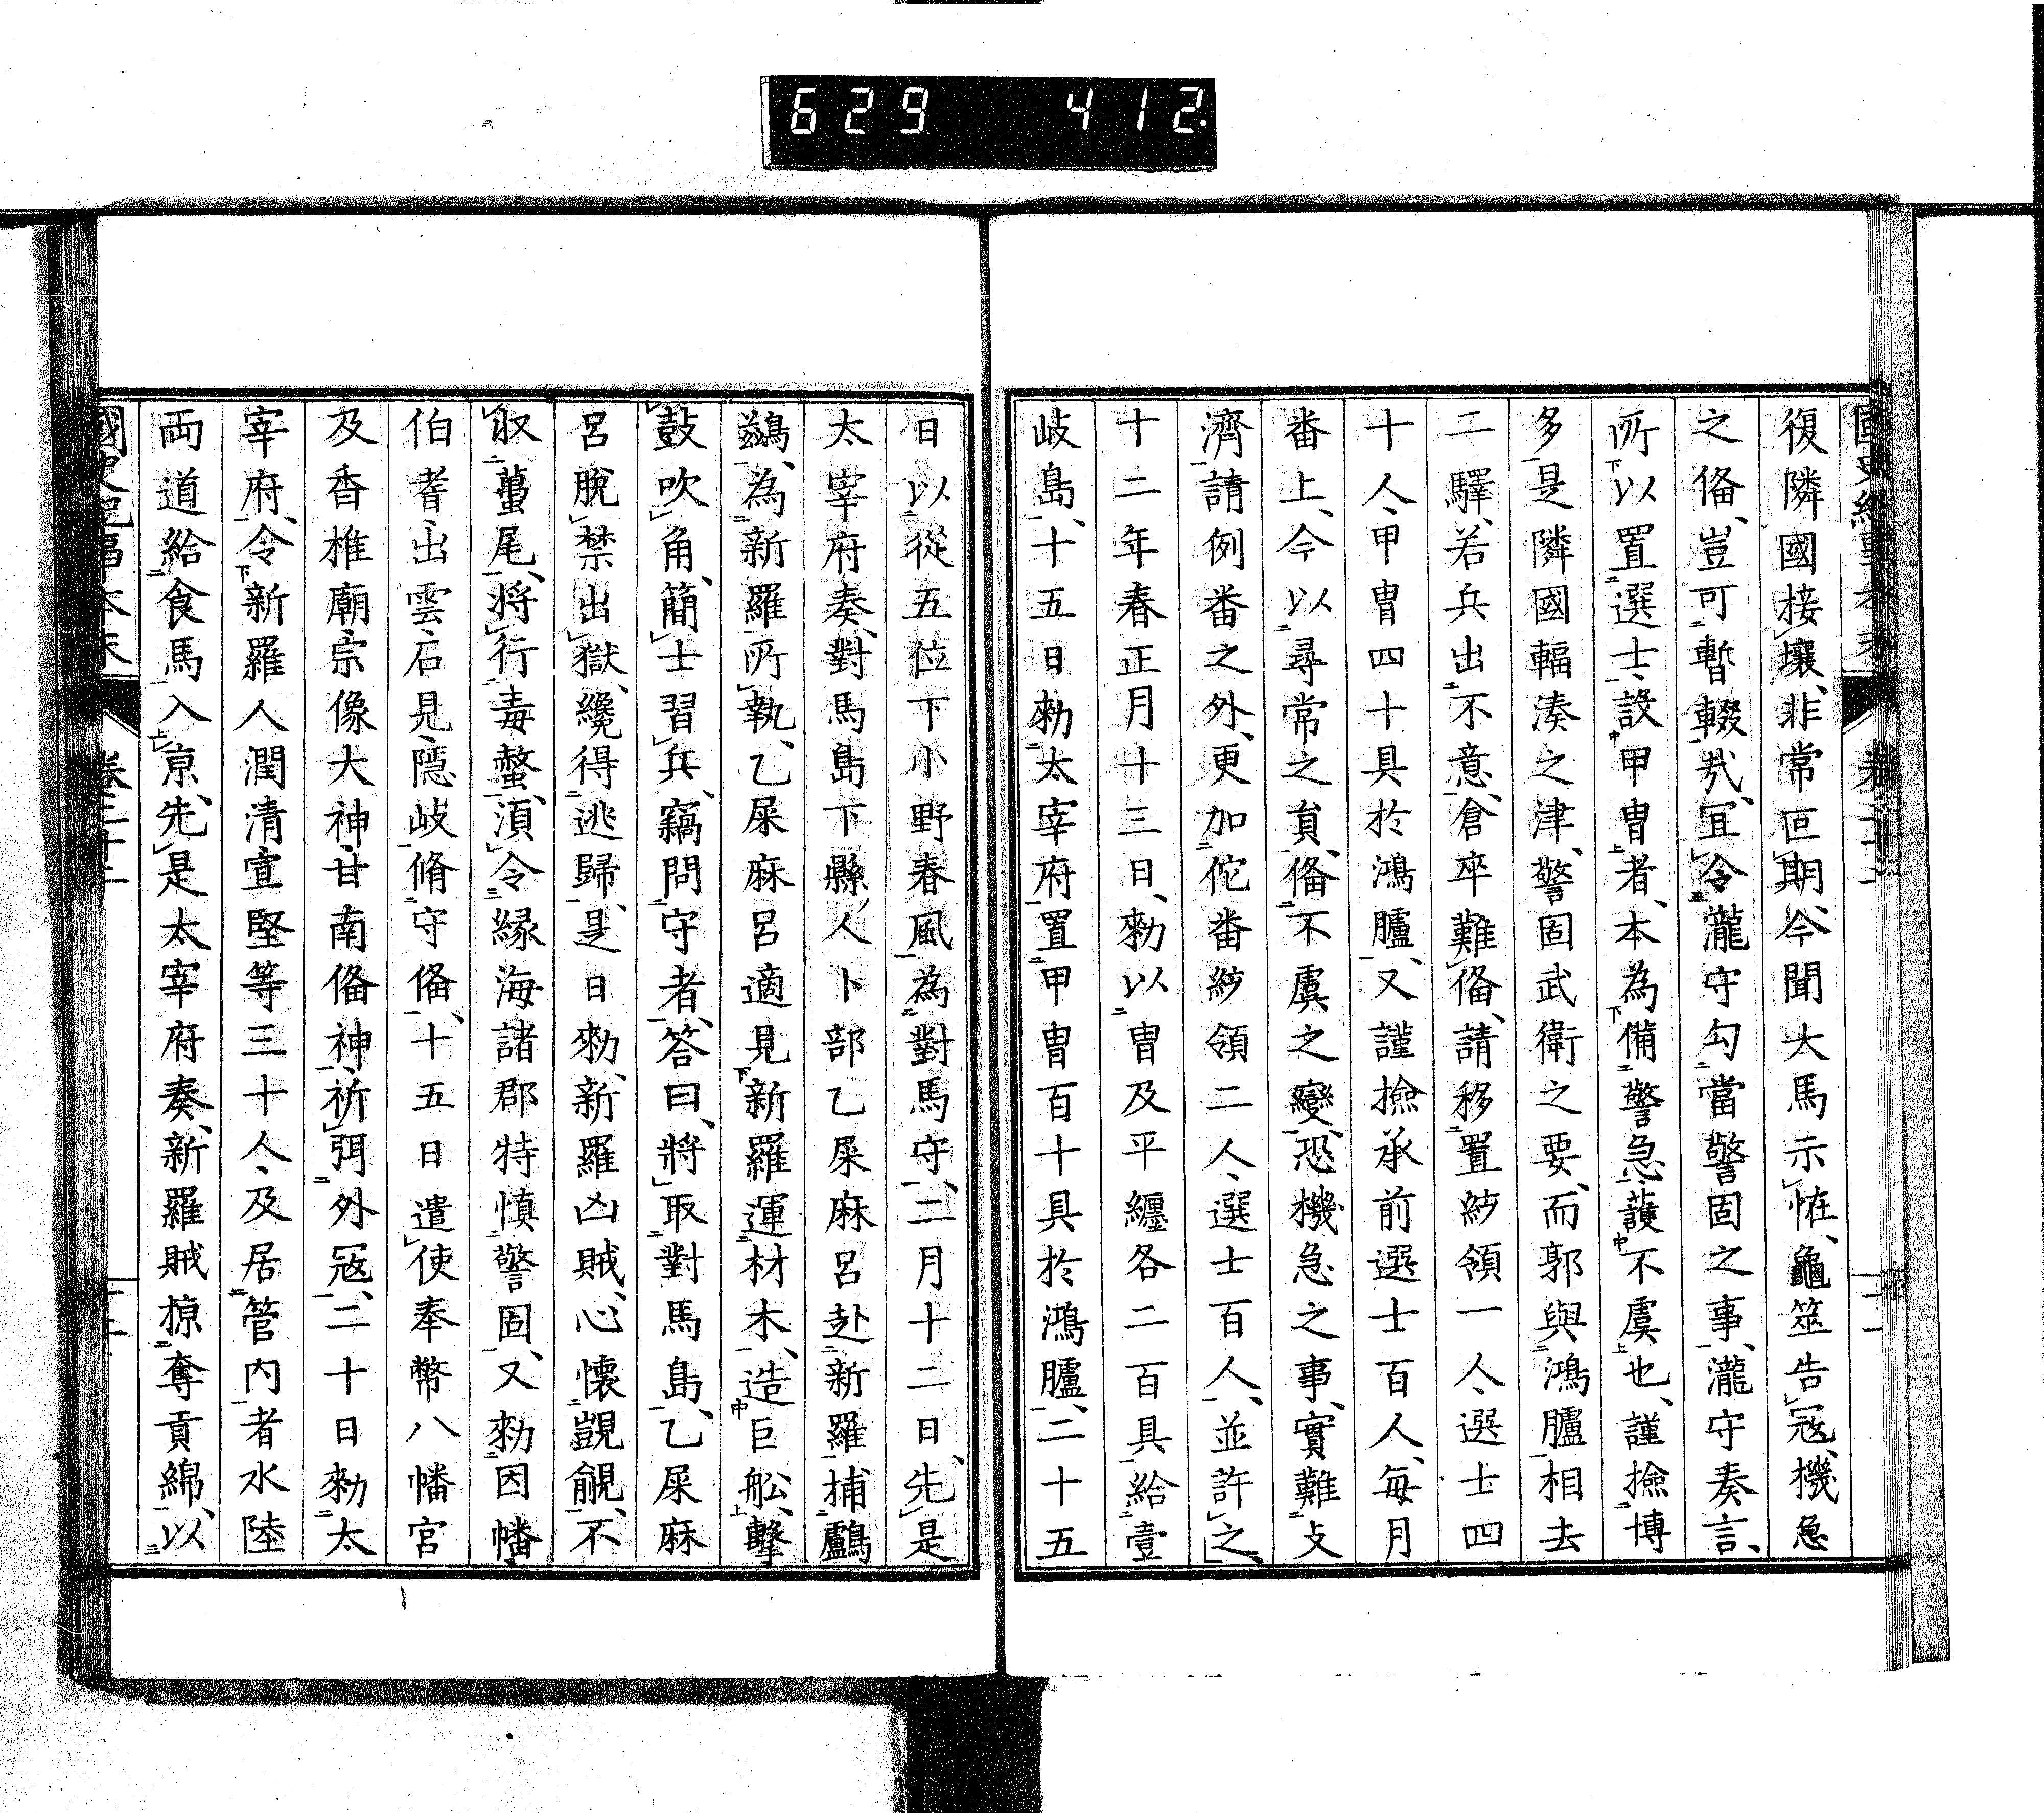 629 412
國史紀事本末 卷二十二
復隣國接壤、非常叵期、今聞大馬示恠、龜筮告寇、機急
之俻、豈可暫輟㢤、冝令瀧守勾當警固之事、瀧守奏言、
所以置選士、設甲冑者、本為備警急、護不虞也、謹撿博
多、是隣國輻湊之津、警固武衛之要、而郭與鴻臚相去
二驛、若兵出不意、倉卒難俻、請移置綂領一人、選士四
十人、甲冑四十具於鴻臚、又謹撿承前選士百人、每月
番上、今以尋常之員、俻不虞之變、恐機急之事、實難支
濟、請例番之外、更加佗番綂領二人、選士百人、並許之、
十二年春正月十三日、勑以冑及平纏各二百具、給壹
岐島、十五日勑太宰府置甲冑百十具於鴻臚、二十五
日以從五位下小野春風為對馬守、二月十二日、先是
太宰府奏、對馬島下縣人卜部乙屎麻呂赴新羅捕鸕
鷀、為新羅所執、乙屎麻呂適見新羅運材木、造巨舩、擊
鼓吹角、簡士習兵、竊問守者、答曰、將取對馬島、乙屎麻
呂脫禁出獄、纔得逃歸、是日勑、新羅凶賊、心懐覬覦、不
収蠆尾、将行毒螫、湏令縁海諸郡特慎警固、又勑因幡、
伯耆、出雲、石見、隱岐、脩守俻、十五日遣使奉幣八幡宮
及香椎廟、宗像大神、甘南俻神、祈弭外寇、二十日勑太
宰府、令新羅人潤清宣堅等三十人、及居管内者水陸
両道給食馬入亰、先是太宰府奏、新羅賊掠奪貢綿、以
國史紀事本末 卷二十二